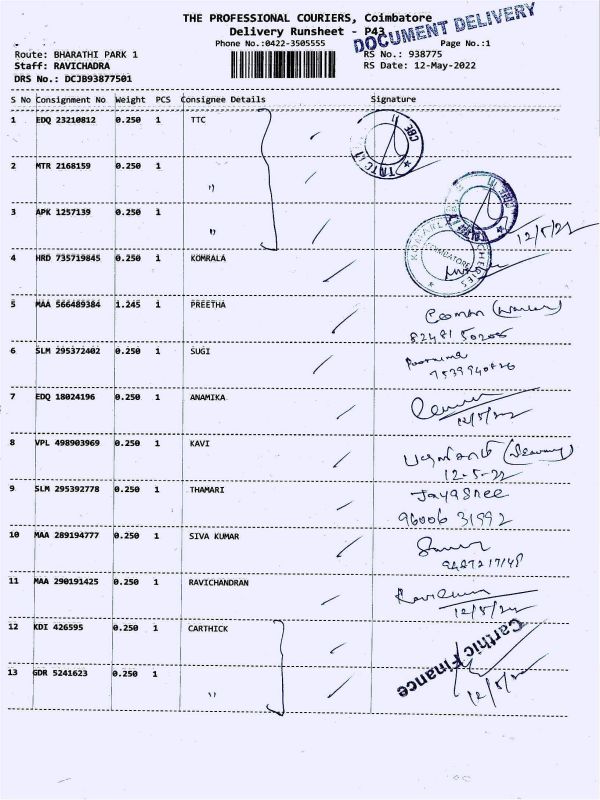 THE PROFESSIONAL COURIERS, Coimbatore
Delivery Runsheet - P43
DOCUMENT DELIVERY
Phone No.:0422-3505555
Page No.:1
Route: BHARATHI PARK 1
RS No.: 938775
Staff: RAVICHADRA
RS Date: 12-May-2022
DRS No.: DCJB93877501
S No Consignment No Weight PCS Consignee Details Signature
1 EDQ 23210812 0.250 1 TTC
2 MTR 2168159 0.250 1 "
3 APK 1257139 0.250 1 "
12/5/22
4 HRD 735719845 0.250 1 KOMRALA
COIMBATORE
5 MAA 566489384 1.245 1 PREETHA
82481 50206
6 SLM 295372402 0.250 1 SUGI
Poornima
7 EDQ 18024196 0.250 1 ANAMIKA
12/5/22
8 VPL 498903969 0.250 1 KAVI
12-5-22
9 SLM 295392778 0.250 1 THAMARI
Jayasree
96006 31992
10 MAA 289194777 0.250 1 SIVA KUMAR
9487217148
11 MAA 290191425 0.250 1 RAVICHANDRAN
12/5/22
12 KDI 426595 0.250 1 CARTHICK
Carthic Finance
13 GDR 5241623 0.250 1 "
12/5/22